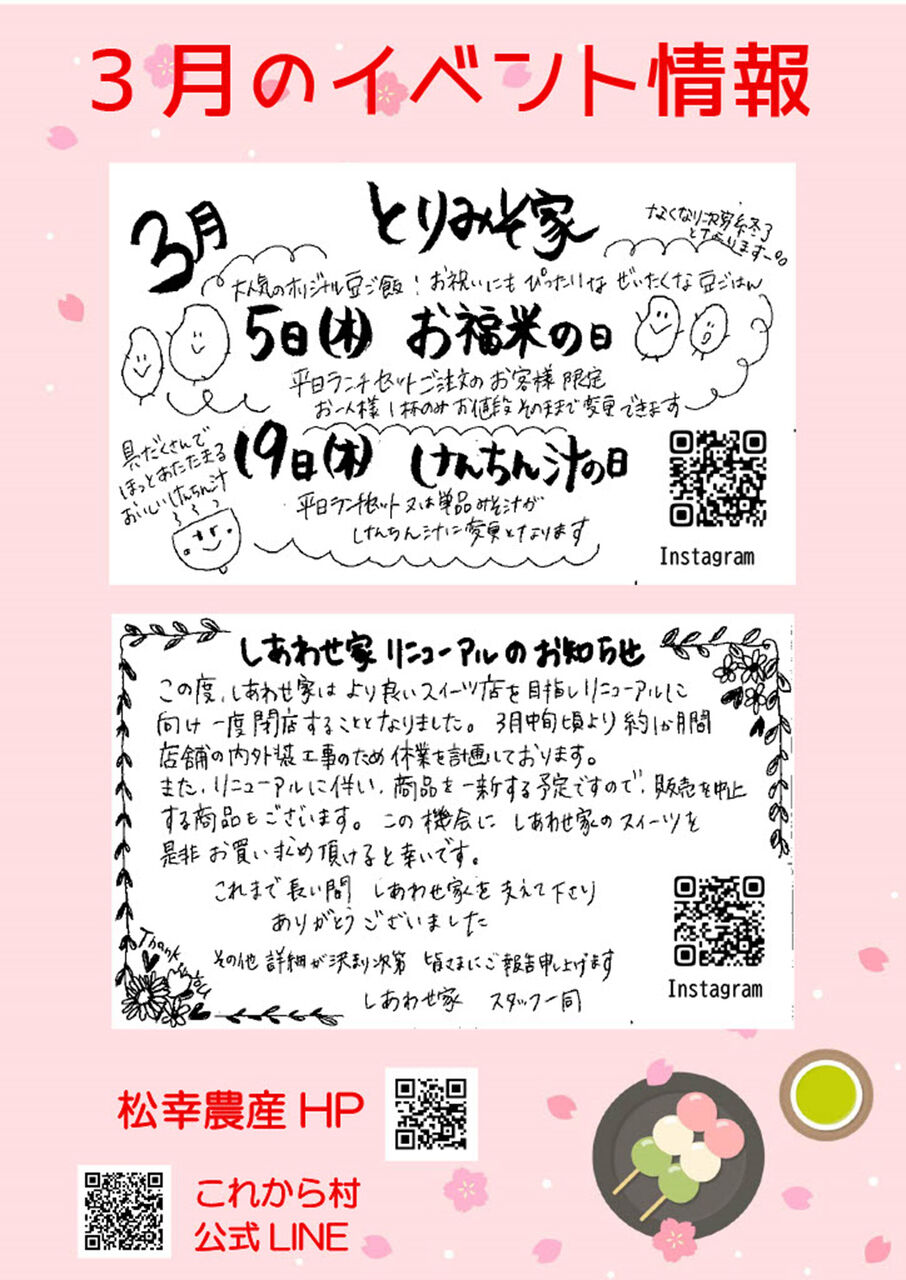 3月のイベント情報
3月
とりみそ家
なくなり次第終了
となりますー。。
大気のオリジナル豆ご飯！お祝いにもぴったりな ぜいたくな豆ごはん
5日(木) お福米の日
平日ランチセットご注文のお客様限定
お一人様1杯のみお値段そのままで変更できます
19日(木) けんちん汁の日
具だくさんで
ほっとあたたまる
おいしいけんちん汁
平日ランチセット又は単品みそ汁が
けんちん汁に変更となります
Instagram
しあわせ家 リニューアルのお知らせ
この度、しあわせ家は より良いスイーツ店を目指しリニューアルに
向け一度閉店することとなりました。3月中旬頃より約1か月間
店舗の内外装工事のため休業を計画しております。
また、リニューアルに伴い、商品を一新する予定ですので、販売を中止
する商品もございます。この機会に しあわせ家のスイーツを
是非お買い求め頂けると幸いです。
これまで長い間 しあわせ家を支えて下さり
ありがとうございました
その他詳細が決まり次第 皆さまにご報告申し上げます
しあわせ家 スタッフ一同
Thank you
Instagram
松幸農産 HP
これから村
公式 LINE